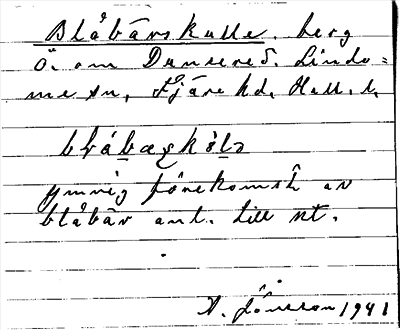 Blåbärskulle, berg
Ö. om Dunsered. Lindo=
me sn, Fjäre hd, Hall. l.
blåbæʂkɵlə
ymnig förekomst av
blåbär ant. till nt.
A. Jönsson 1941